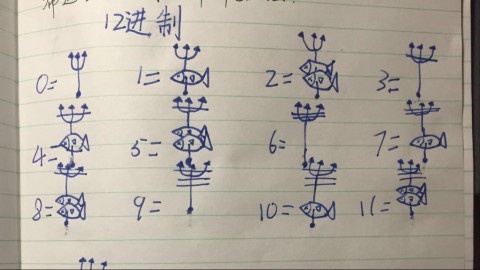 12进制
0= 1= 2= 3=
4= 5= 6= 7=
8= 9= 10= 11=